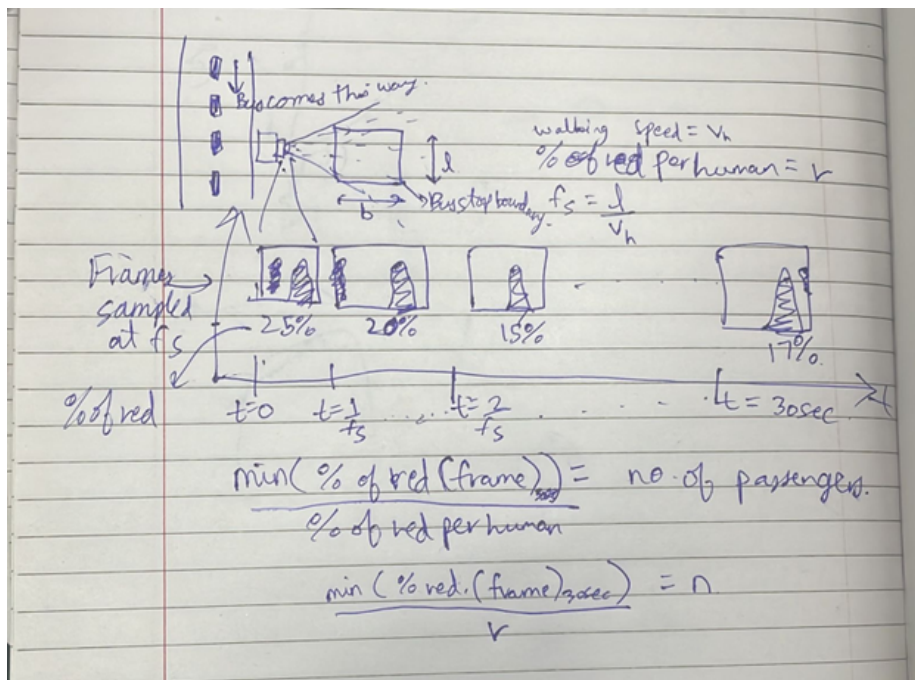 Bus comes this way.
walking speed = Vh
% of red per human = r
l
b
Bus stop boundary.
fs = l / Vh
Frames
sampled
at fs
25%
20%
15%
17%.
% of red
t=0
t=1/fs
t=2/fs
t = 30sec
t
min( % of red (frame)30s) = no. of passengers.
% of red per human
min ( % red. (frame)30sec) = n
r